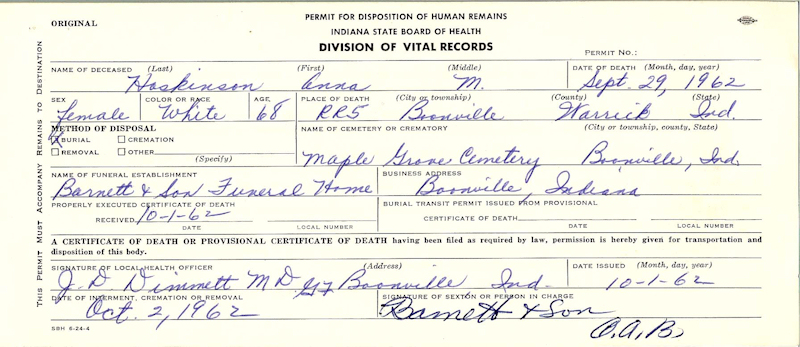 ORIGINAL
PERMIT FOR DISPOSITION OF HUMAN REMAINS
INDIANA STATE BOARD OF HEALTH
DIVISION OF VITAL RECORDS
PERMIT NO.:
THIS PERMIT MUST ACCOMPANY REMAINS TO DESTINATION
NAME OF DECEASED (Last) (First) (Middle) DATE OF DEATH (Month, day, year)
Hoskinson Anna M. Sept. 29, 1962
SEX COLOR OR RACE AGE PLACE OF DEATH (City or township) (County) (State)
Female White 68 RR5 Boonville Warrick Ind.
METHOD OF DISPOSAL NAME OF CEMETERY OR CREMATORY (City or township, county, State)
BURIAL CREMATION
REMOVAL OTHER
(Specify)
Maple Grove Cemetery Boonville, Ind.
NAME OF FUNERAL ESTABLISHMENT BUSINESS ADDRESS
Barnett & Son Funeral Home Boonville, Indiana
PROPERLY EXECUTED CERTIFICATE OF DEATH BURIAL TRANSIT PERMIT ISSUED FROM PROVISIONAL
RECEIVED 10-1-62 CERTIFICATE OF DEATH
DATE LOCAL NUMBER DATE LOCAL NUMBER
A CERTIFICATE OF DEATH OR PROVISIONAL CERTIFICATE OF DEATH having been filed as required by law, permission is hereby given for transportation and
disposition of this body.
SIGNATURE OF LOCAL HEALTH OFFICER (Address) DATE ISSUED (Month, day, year)
J. D. Dimmett M.D. Boonville Ind. 10-1-62
DATE OF INTERMENT, CREMATION OR REMOVAL SIGNATURE OF SEXTON OR PERSON IN CHARGE
Oct. 2, 1962 Barnett & Son
O.A.B.
SBH 6-24-4